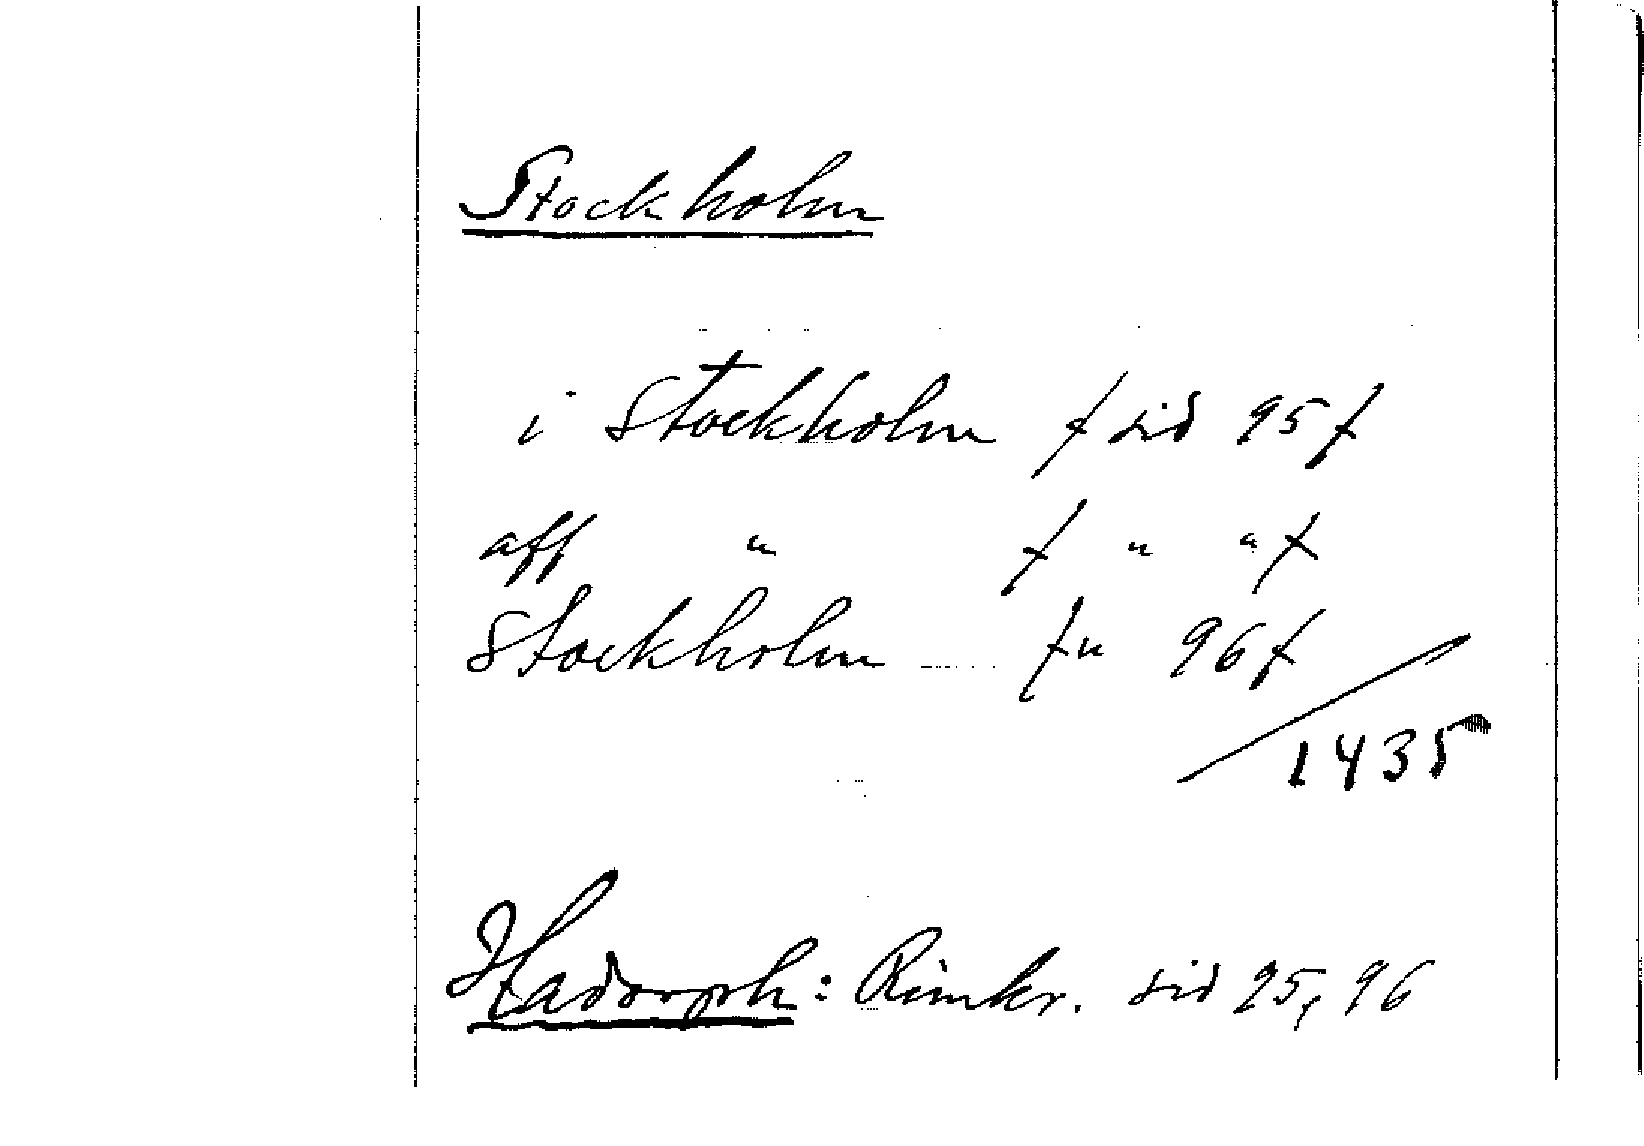 Stockholm
i Stockholm f sid 95 f
aff " f " " f
Stockholm f " 96 f
/ 1435
Hadorph: Rimkr. sid 95, 96